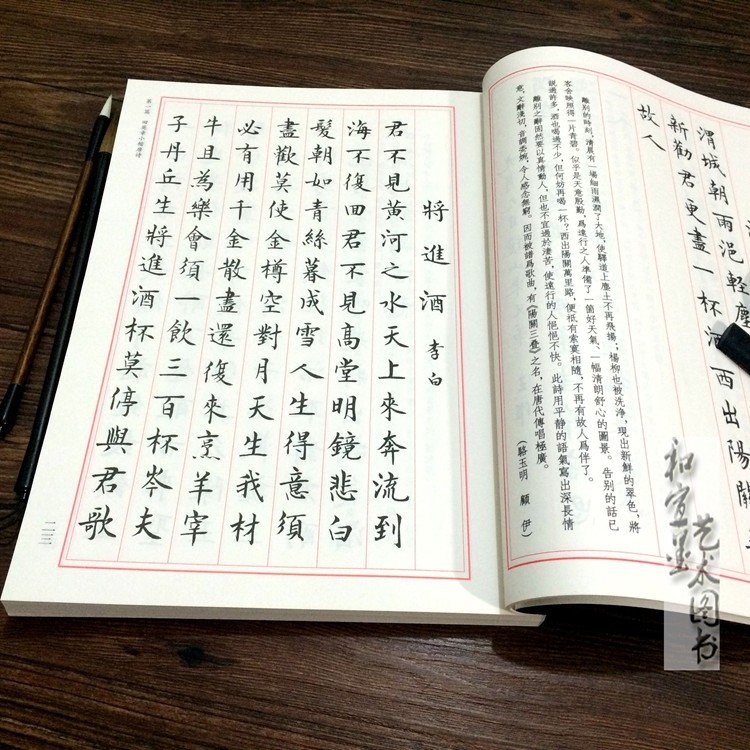 渭城朝雨浥輕塵
新勸君更盡一杯酒西出陽關
故人
離別的時刻,清晨有一場細雨濕潤了大地,使驛道上塵土不再飛揚;楊柳也被洗淨,現出新鮮的翠色,將
客舍映照得一片青碧。似乎是天意殷勤,爲遠行之人準備了一個好天氣、一幅清朗舒心的圖景。告别的話已
說過許多,酒也喝過不少,但何妨再喝一杯?西出陽關萬里路,便衹有索寞相隨,不再有故人爲伴了。
離别之辭固然要以真情動人,但也不宜過於淒苦,使遠行的人悒悒不快。此詩用平静的語氣寫出深長情
意,文辭淺切,音調委婉,令人感念無窮。因而被譜爲歌曲,有《陽關三疊》之名,在唐代傳唱極廣。
(駱玉明 顧伊)
將進酒 李白
君不見黄河之水天上來奔流到
海不復回君不見高堂明鏡悲白
髮朝如青絲暮成雪人生得意須
盡歡莫使金樽空對月天生我材
必有用千金散盡還復來烹羊宰
牛且為樂會須一飲三百杯岑夫
子丹丘生將進酒杯莫停與君歌
第一篇 田英章小楷唐詩
和宜墨
艺术图书